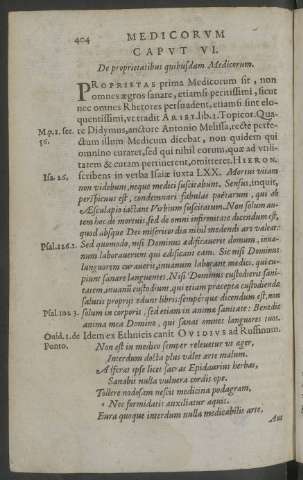 404 MEDICORVM
CAPVT VI.
De proprietatibus quibusdam Medicorum.
PROPRIETAS prima Medicorum sit, non
omnes ægros sanare, etiamsi peritissimi, sicut
nec omnes Rhetores persuadent, etiamsi sint elo-
quentissimi, vt tradit ARIST. lib. 1. Topicor. Qua-
M.p.1. ser. re Didymus, auctore Antonio Melissa, recte perfe-
56. ctum illum Medicum dicebat, non quidem qui
omnino curaret, sed qui nihil eorum, quæ ad vtili-
tatem & curam pertinerent, omitteret. HIERON.
Isa. 26. scribens in verba Isaiæ iuxta LXX. Mortui vitam
non videbunt, neque medici suscitabunt. Sensus, inquit,
perspicuus est, condemnare fabulas poëtarum, qui ab
Æsculapio iactant Virbium suscitatum. Non solum au-
tem hoc de mortuis, sed de omni infirmitate dicendum est,
quod absque Dei misericordia nihil medendi ars valeat.
Psal. 126.1. Sed quomodo, nisi Dominus ædificauerit domum, inua-
num laborauerunt qui ædificant eam. Sic nisi Dominus
languorem curauerit, inuanum laborant medici, qui cu-
piunt sanare languentes. Nisi Dominus custodierit sani-
tatem, inuanũ custodiunt, qui etiam præcepta custodiendæ
salutis proprijs edunt libris: semper que dicendum est, non
Psal. 102.3. solum in corporis, sed etiam in animæ sanitate: Benedic
anima mea Domino, qui sanat omnes languores tuos.
Ouid. 1. de Idem ex Ethnicis canit OVIDIVS ad Ruffinum.
Ponto. Non est in medico semper releuetur vt æger,
Interdum docta plus valet arte malum.
Afferat ipse licet sacras Epidaurius herbas,
Sanabit nulla vulnera cordis ope.
Tollere nodosam nescit medicina podagram,
Nec formidatis auxiliatur aquis.
Cura quoque interdum nulla medicabilis arte,
Aut